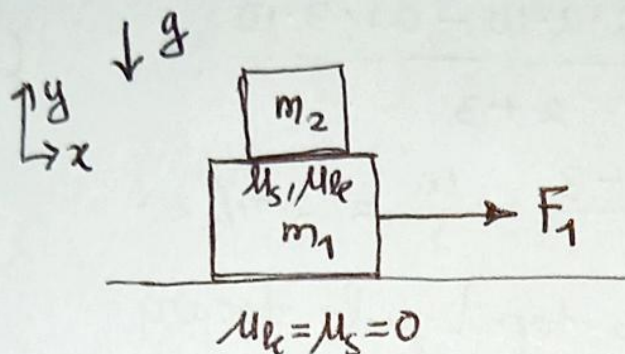 g
y
x
m₂
μₛ, μₖ
m₁
F₁
μₖ = μₛ = 0